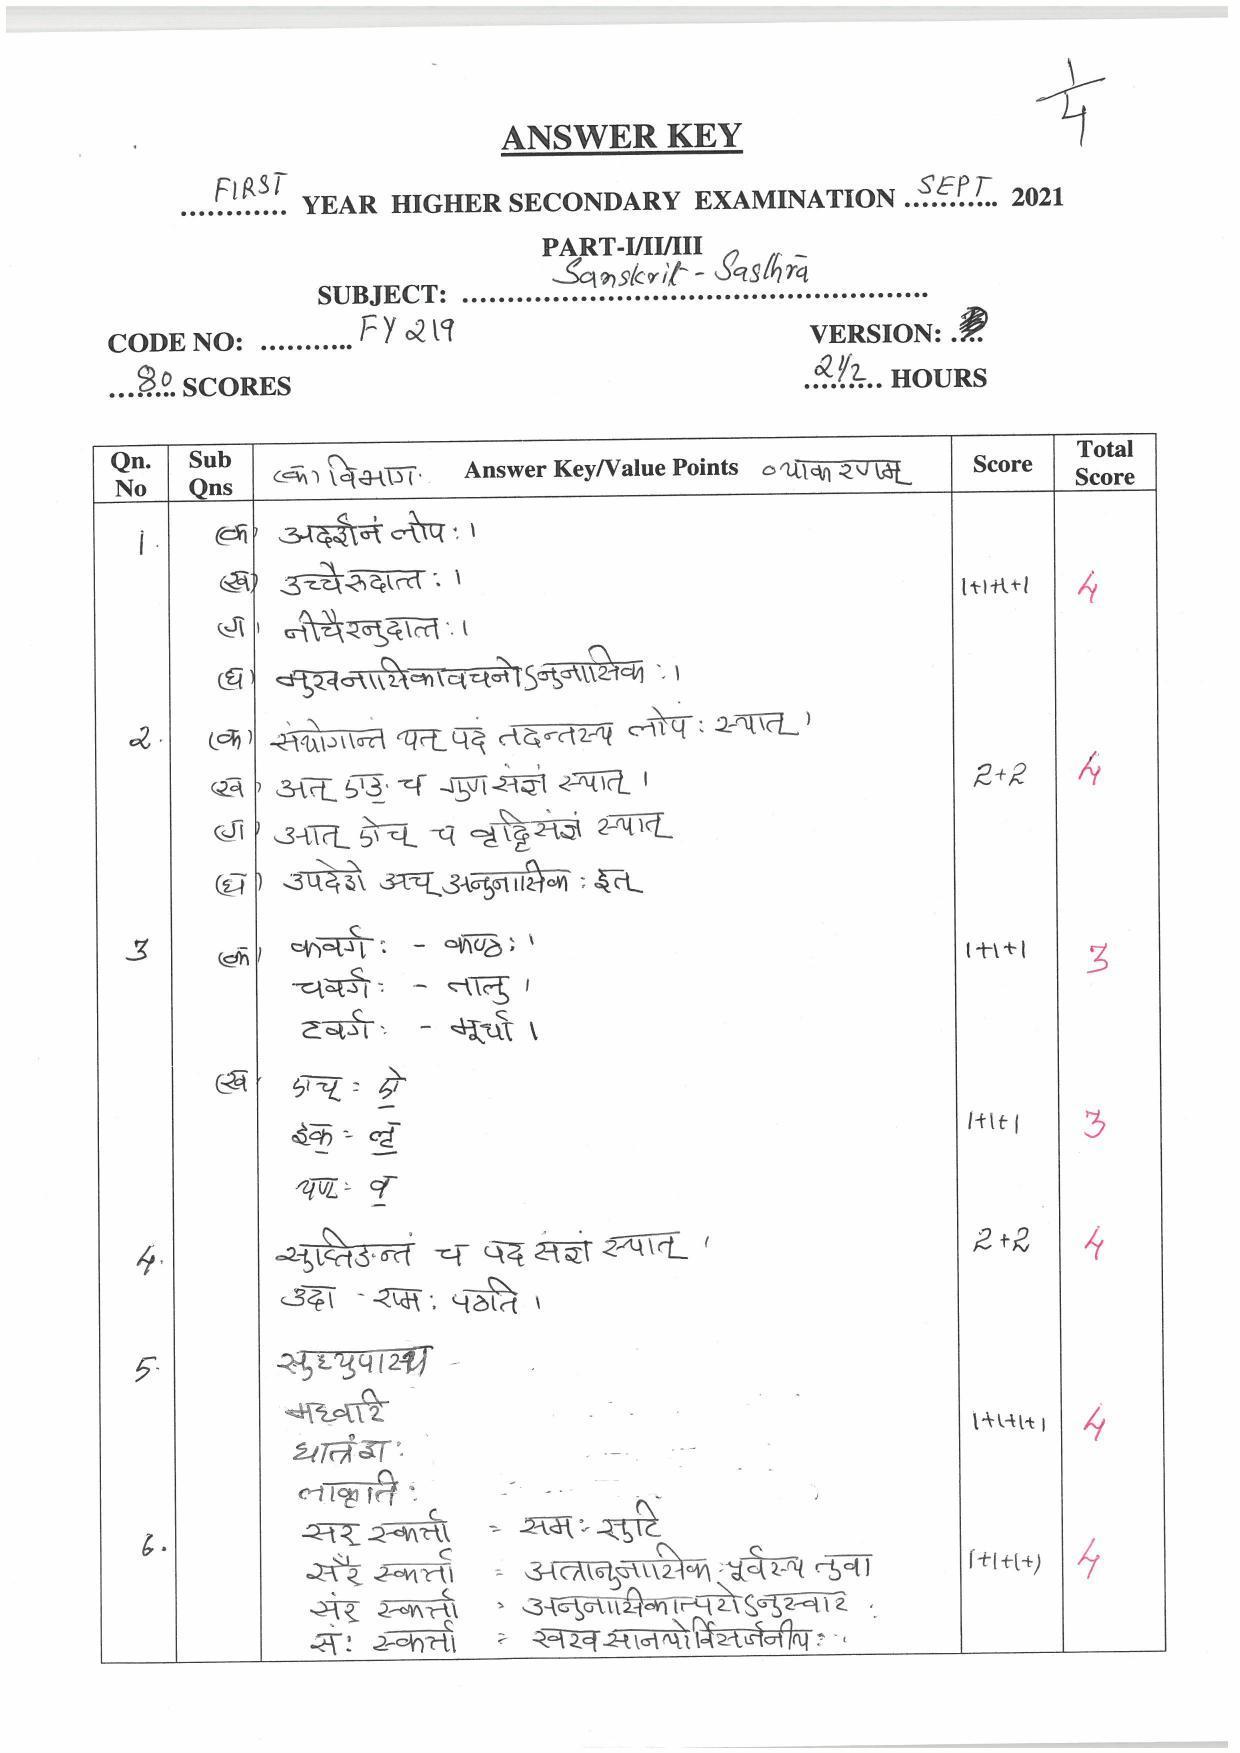 1/4
ANSWER KEY
FIRST YEAR HIGHER SECONDARY EXAMINATION SEPT 2021
PART-I/II/III
SUBJECT: Sanskrit - Sasthrā
CODE NO: FY 219 VERSION:
80 SCORES 2 1/2 HOURS
Qn. No Sub Qns (क) विभागः Answer Key/Value Points व्याकरणम् Score Total Score
1. (क) अदर्शनं लोपः।
(ख) उच्चैरुदात्तः। 1+1+1+1 4
(ग) नीचैरनुदात्तः।
(घ) मुखनासिकावचनोऽनुनासिकः।
2. (क) संयोगान्तं यत् पदं तदन्तस्य लोपः स्यात्।
(ख) अत् एङ् च गुण संज्ञं स्यात्। 2+2 4
(ग) आत् ऐच् च वृद्धिसंज्ञं स्यात्
(घ) उपदेशे अच् अनुनासिकः इत्
3 (क) कवर्गः - कण्ठः। 1+1+1 3
चवर्गः - तालु।
टवर्गः - मूर्धा।
(ख) एच् = ऐ
इक् = लृ 1+1+1 3
यण् = व्
4. सुप्तिङन्तं च पद संज्ञं स्यात्। 2+2 4
उदा - रामः पठति।
5. सुध्युपास्य
मध्वरि 1+1+1+1 4
धात्रंशः
लाकृतिः
6. सर् स्कर्त्ता = समः सुटि
सँर् स्कर्त्ता = अत्रानुनासिकः पूर्वस्य तुवा 1+1+1+1 4
संर् स्कर्त्ता = अनुनासिकात्परोऽनुस्वार
सं: स्कर्त्ता = खरवसानयोर्विसर्जनीयः